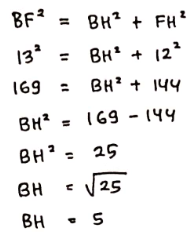 BF² = BH² + FH²
13² = BH² + 12²
169 = BH² + 144
BH² = 169 - 144
BH² = 25
BH = √25
BH = 5